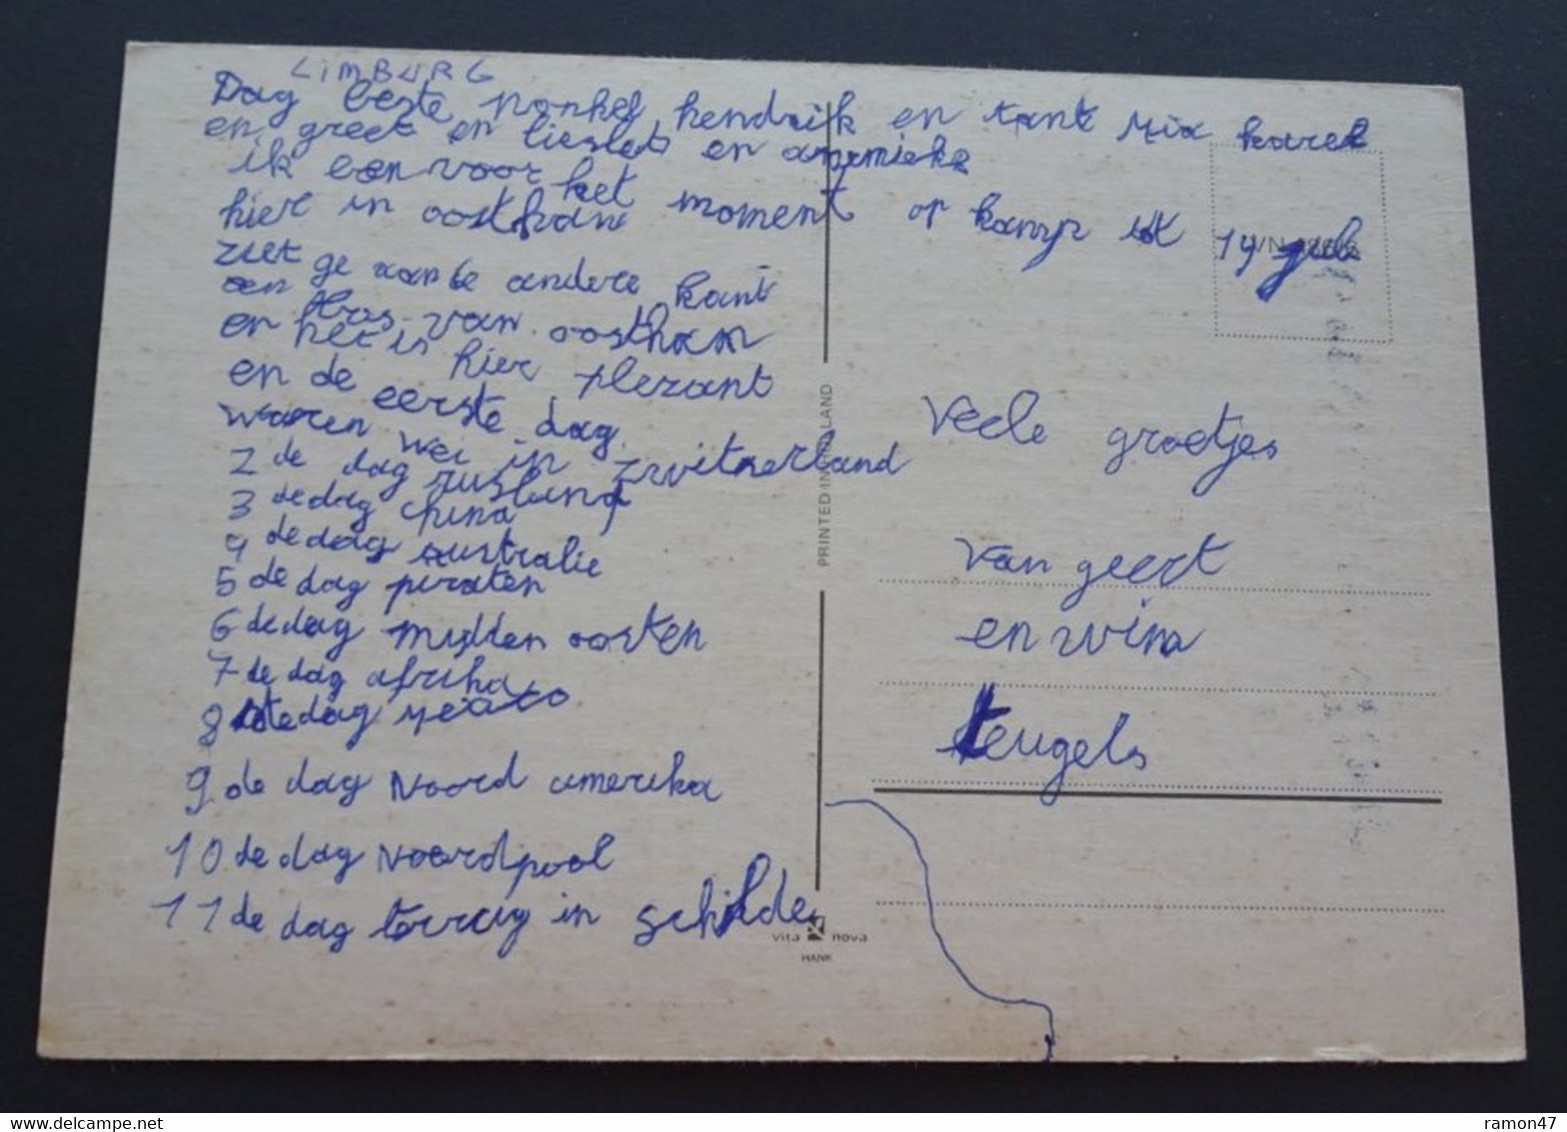 LIMBURG
Dag beste nonkel hendrik en tante Mia karel
en greet en lieslet en annemieke
ik ben voor het moment op kamp tot 19 juli
hier in oostham
ziet ge aan de andere kant
een van oostham
en het is hier plezant
en de eerste dag
waren wei in zwitzerland
2 de dag rusland
3 de dag china
4 de dag australie
5 de dag piraten
6 de dag midden oosten
7 de dag afrika
8 ste dag Mexico
9 de dag Noord amerika
10 de dag Noordpool
11 de dag terug in schilde
Veele groetjes
van geert
en wim
teugels
PRINTED IN HOLLAND
vita nova
HANK
ramon47